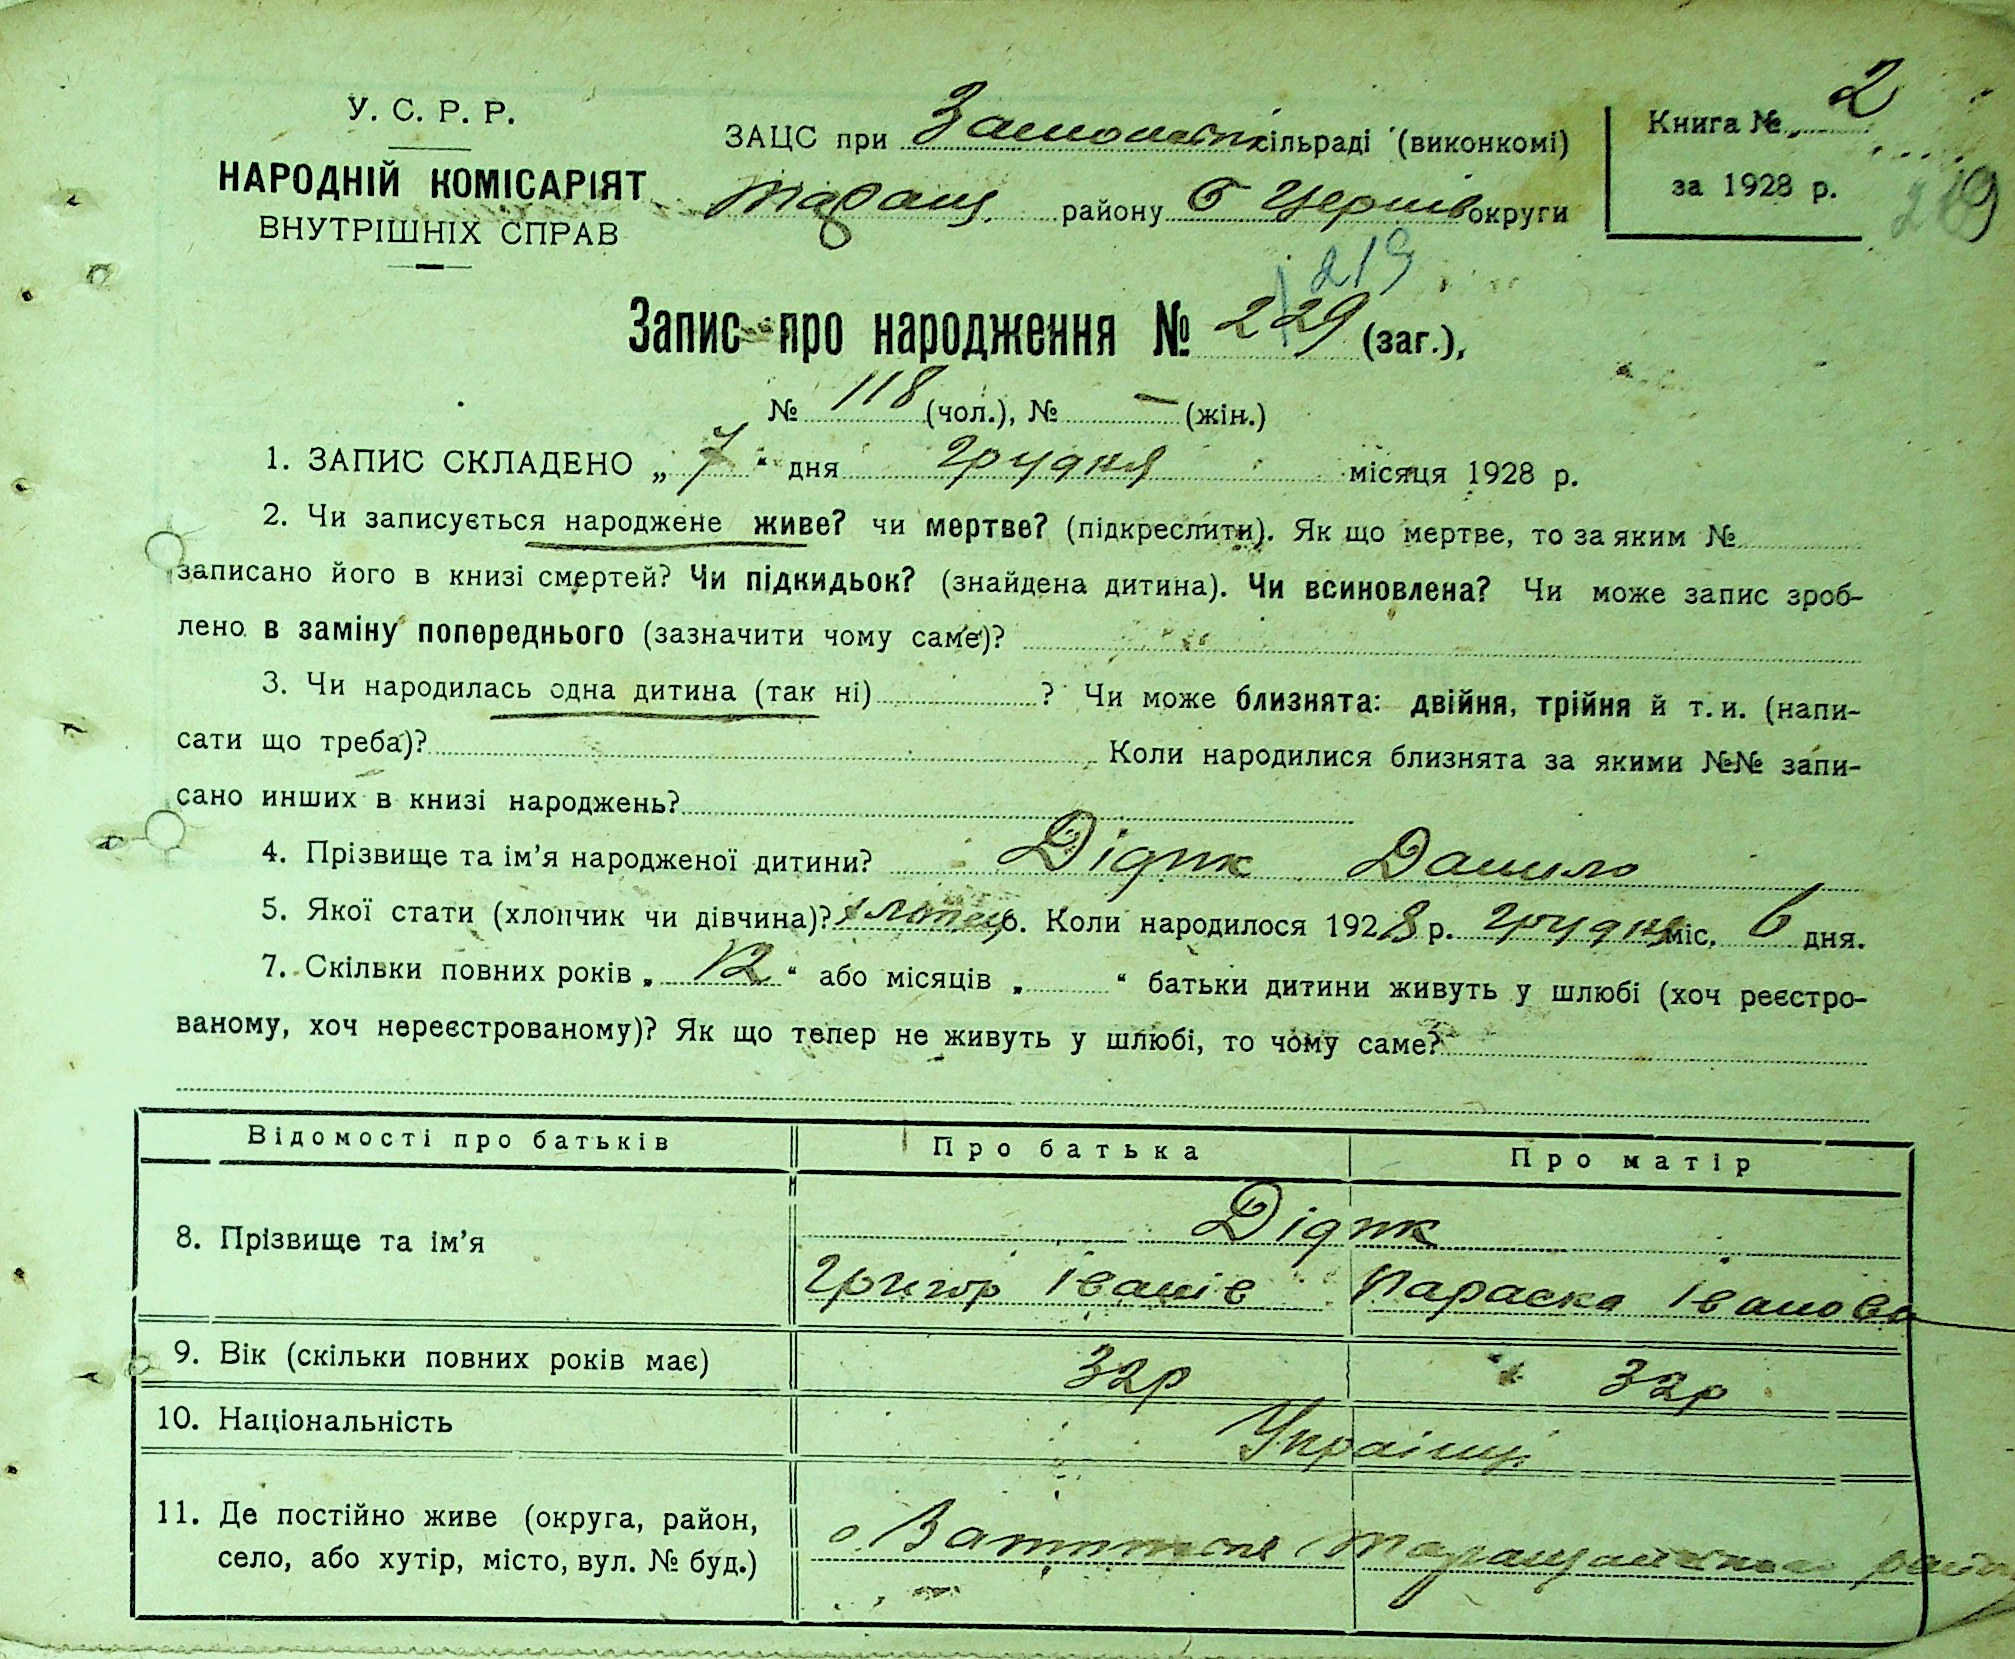 У. С. Р. Р.
НАРОДНІЙ КОМІСАРІЯТ
ВНУТРІШНІХ СПРАВ
ЗАЦС при сільраді (виконкомі)
Таращ. району Б Церків округи
Книга № 2
за 1928 р.
219
219
Запис про народження № 229 (заг.),
№ 118 (чол.), № — (жін.)
1. ЗАПИС СКЛАДЕНО „ 7 “ дня грудня місяця 1928 р.
2. Чи записується народжене живе? чи мертве? (підкреслити). Як що мертве, то за яким №
записано його в книзі смертей? Чи підкидьок? (знайдена дитина). Чи всиновлена? Чи може запис зроб-
лено в заміну попереднього (зазначити чому саме)?
3. Чи народилась одна дитина (так ні) ? Чи може близнята: двійня, трійня й т. и. (напи-
сати що треба)? Коли народилися близнята за якими №№ запи-
сано инших в книзі народжень?
4. Прізвище та ім’я народженої дитини? Дідик Данило
5. Якої стати (хлопчик чи дівчина)? хлопець 6. Коли народилося 1928 р. грудня міс. 6 дня.
7. Скільки повних років „ 12 “ або місяців „ “ батьки дитини живуть у шлюбі (хоч реєстро-
ваному, хоч нереєстрованому)? Як що тепер не живуть у шлюбі, то чому саме?
Відомості про батьків Про батька Про матір
8. Прізвище та ім’я Дідик
Григор Іванів Параска Іванова
9. Вік (скільки повних років має) 32р 32р
10. Національність Українці
11. Де постійно живе (округа, район,
село, або хутір, місто, вул. № буд.) Таращанського район